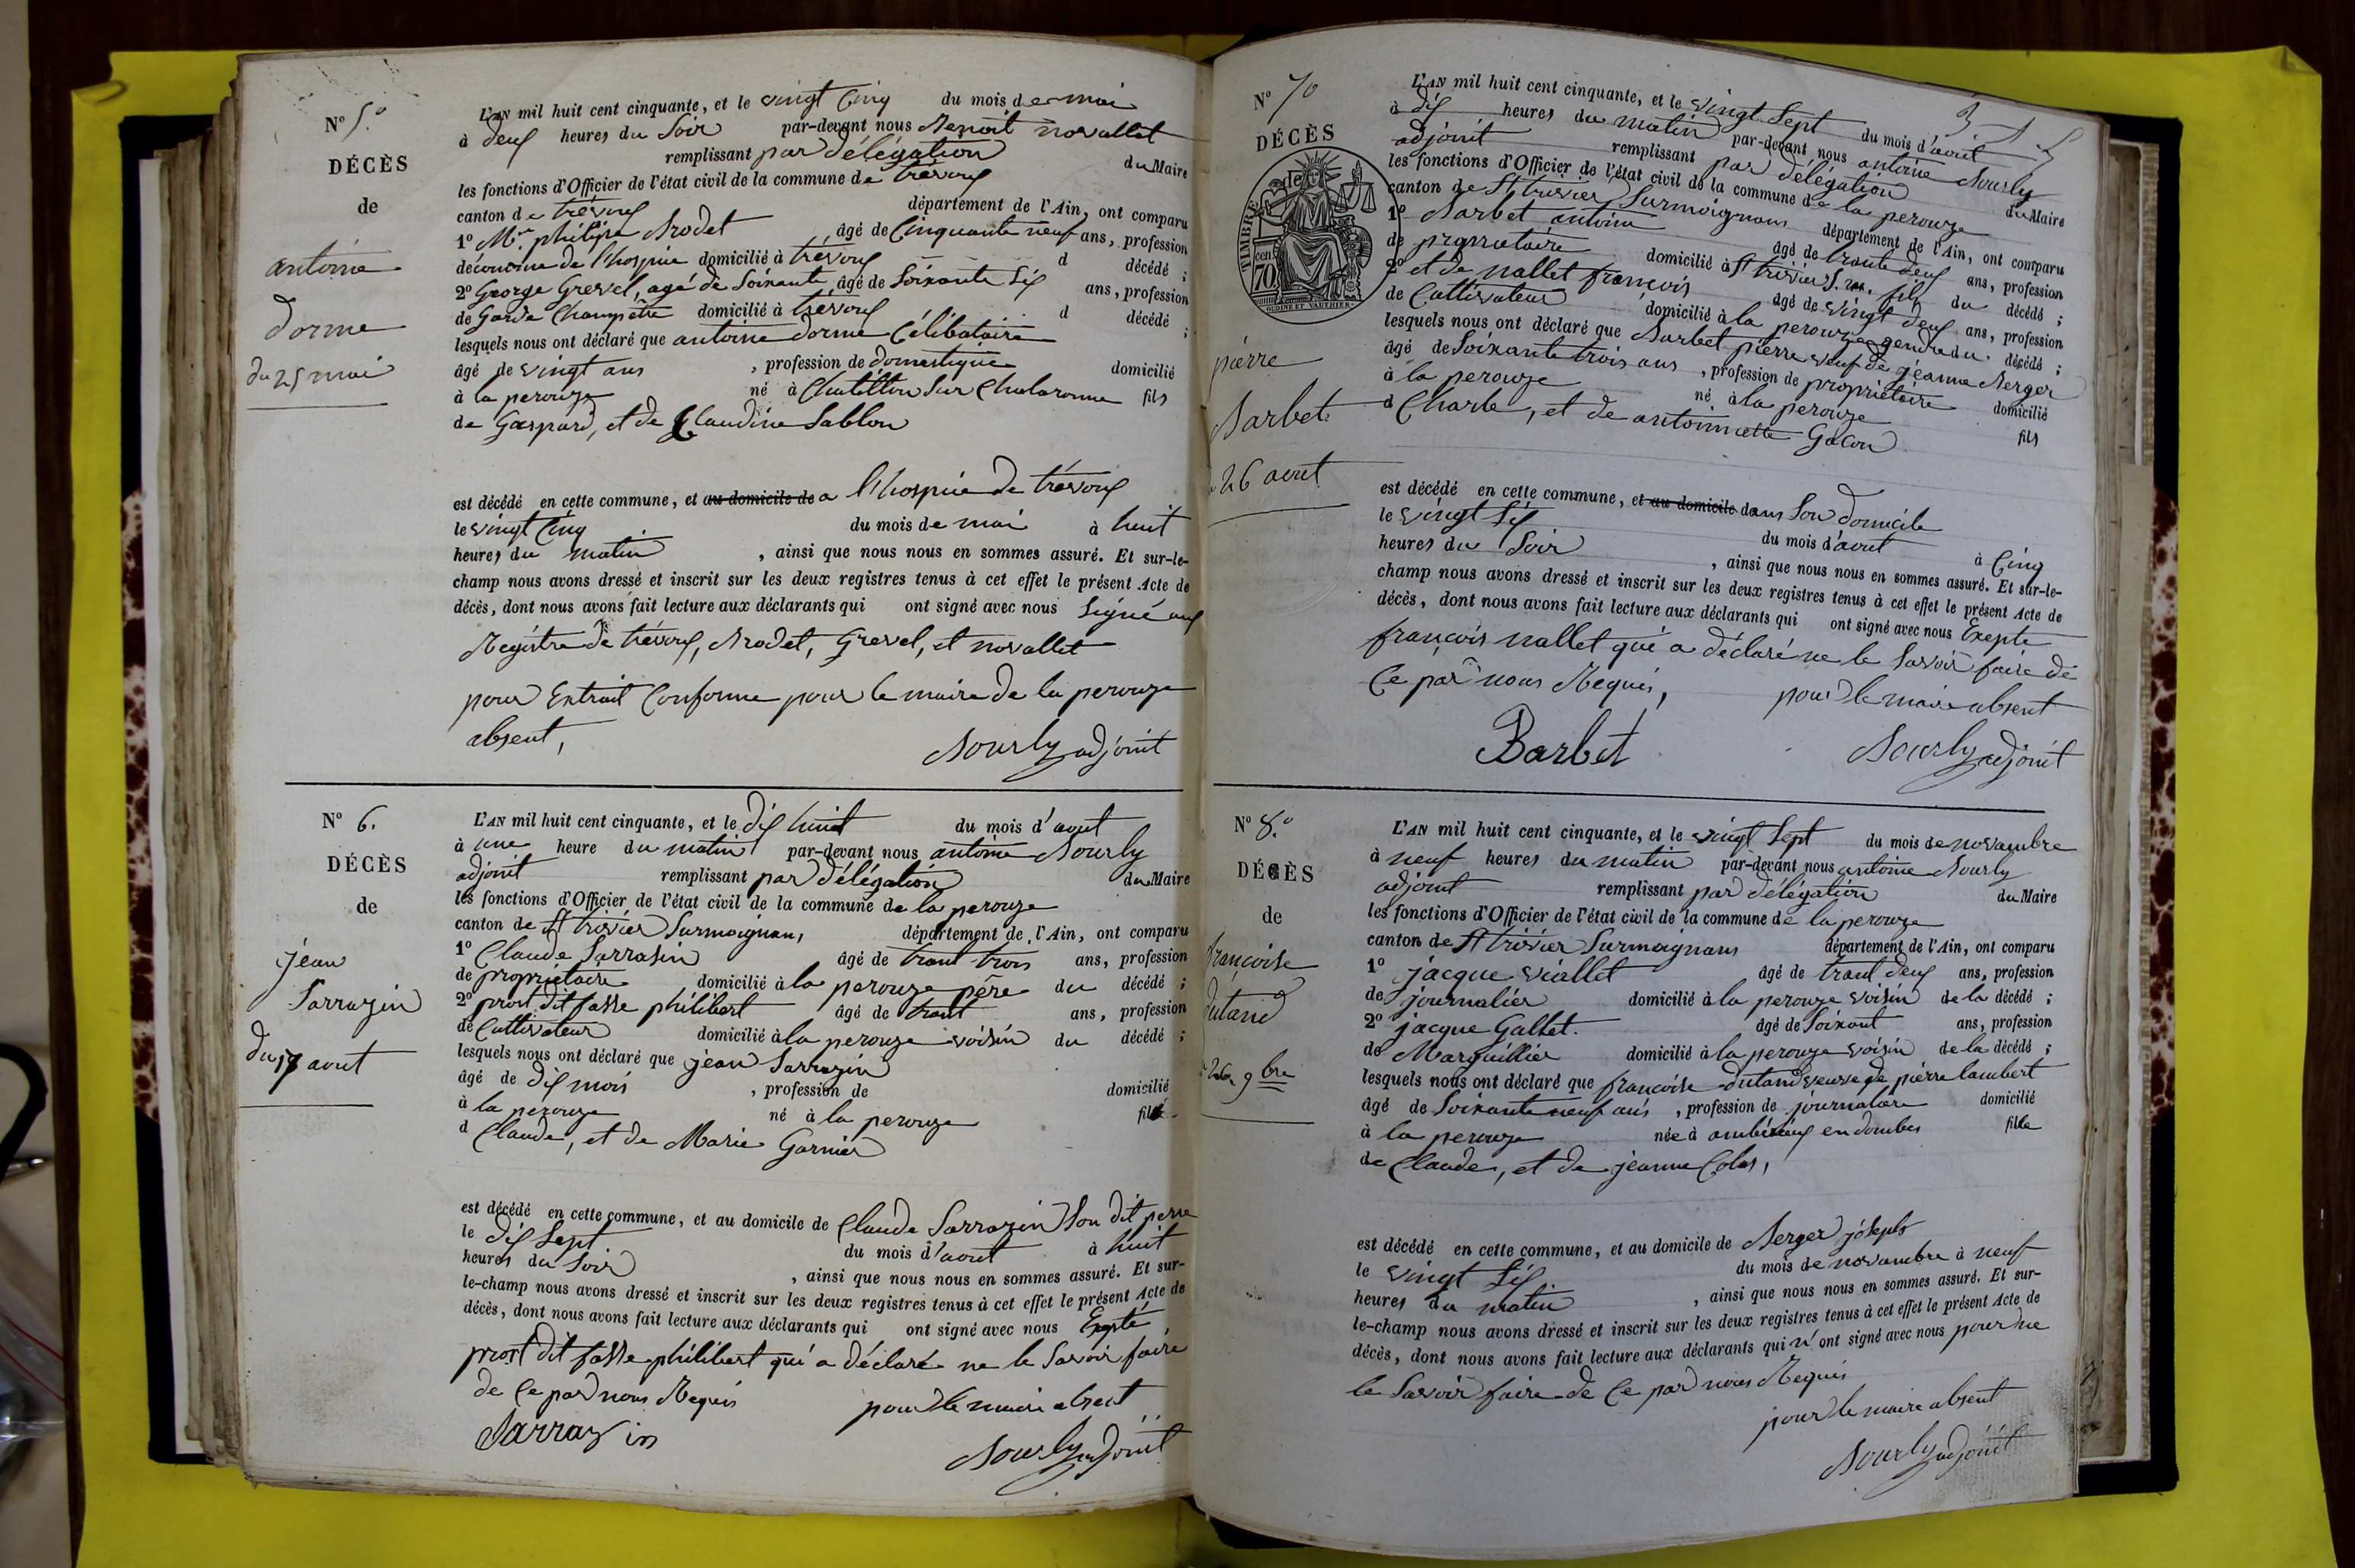 N° 5.°
DÉCÈS
de
antoine
dorme
du 25 mai
L'AN mil huit cent cinquante, et le vingt Cinq du mois de mai
à deux heures du Soir par-devant nous Benoit novallet
remplissant par délégation du Maire
les fonctions d'Officier de l'état civil de la commune de trévoux
canton de trévoux département de l'Ain, ont comparu
1° Mr. philipe Brodet âgé de Cinquante neuf ans, profession
d'économe de l'hospice domicilié à trévoux d décédé ;
2° George Grevel, agé de Soixante âgé de Soixante Six ans, profession
de Garde Champetre domicilié à trévoux d décédé ;
lesquels nous ont déclaré que antoine dorme Célibataire
âgé de vingt ans , profession de domestique domicilié
à la perouze né à Chatillon Sur Chalaronne fils
de Gaspard, et de Claudine Sablon
est décédé en cette commune, et au domicile de a l'hospice de trévoux
le vingt Cinq du mois de mai à huit
heures du matin , ainsi que nous nous en sommes assuré. Et sur-le-
champ nous avons dressé et inscrit sur les deux registres tenus à cet effet le présent Acte de
décès, dont nous avons fait lecture aux déclarants qui ont signé avec nous Signé aux
Régistre de trévoux, Brodet, Grevel, et novallet
pour Extrait Conforme pour le maire de la perouze
absent,
Bourly adjoint
N° 6.
DÉCÈS
de
jean
Sarrazin
du 17 aout
L'AN mil huit cent cinquante, et le dix huit du mois d'aout
à une heure du matin par-devant nous antoine Bourly
adjoint remplissant par délégation du Maire
les fonctions d'Officier de l'état civil de la commune de la perouze
canton de St trivier Surmoignans, département de l'Ain, ont comparu
1° Claude Sarrasin âgé de trant trois ans, profession
de propriétaire domicilié à la perouze père du décédé ;
2° prost dit fasse philibert âgé de trant ans, profession
de Cultivateur domicilié à la perouze voisin du décédé ;
lesquels nous ont déclaré que jean Sarrazin
âgé de dix mois , profession de domicilié
à la perouze né à la perouze fils
d Claude, et de Marie Garnier
est décédé en cette commune, et au domicile de Claude Sarrazin Son dit perre
le dix Sept du mois d'aout à huit
heures du Soir , ainsi que nous nous en sommes assuré. Et sur-
le-champ nous avons dressé et inscrit sur les deux registres tenus à cet effet le présent Acte de
décès, dont nous avons fait lecture aux déclarants qui ont signé avec nous Expté
prost dit fasse philibert qui a déclaré ne le Savoir faire
de Ce par nous Requis pour le maire absent
Sarrazin
Bourly adjoint
N° 70
DÉCÈS
TIMBRE
cen
70
OUDINE ET VAUTHIER
pierre
Barbet
26 aout
L'AN mil huit cent cinquante, et le vingt Sept du mois d'aout
à dix heures du matin par-devant nous antoine Bourly
adjoint remplissant par délégation du Maire
les fonctions d'Officier de l'état civil de la commune de la perouze
canton de St trivier Surmoignans département de l'Ain, ont comparu
1° Barbet antoine âgé de trante deux ans, profession
de propriétaire domicilié à St trivier S. m. fils du décédé ;
2° et de nallet françois âgé de vingt deux ans, profession
de Cultivateur domicilié à la perouze gendre du décédé ;
lesquels nous ont déclaré que Barbet pierre veuf de jeanne Berger
âgé de Soixante trois ans , profession de propriétaire domicilié
à la perouze né à la perouze fils
d Charle, et de antoinette Gacon
est décédé en cette commune, et au domicile dans Son domicile
le vingt Six du mois d'aout à Cinq
heures du Soir , ainsi que nous nous en sommes assuré. Et sur-le-
champ nous avons dressé et inscrit sur les deux registres tenus à cet effet le présent Acte de
décès, dont nous avons fait lecture aux déclarants qui ont signé avec nous Exepte
françois nallet qui a déclaré ne le Savoir faire de
Ce par nous Requis, pour le maire absent
Barbet
Bourly adjoint
N° 8.°
DÉCÈS
de
françoise
dutand
26 9bre
L'AN mil huit cent cinquante, et le vingt Sept du mois de novambre
à neuf heures du matin par-devant nous antoine Bourly
adjoint remplissant par délégation du Maire
les fonctions d'Officier de l'état civil de la commune de la perouze
canton de St trivier Surmoignans département de l'Ain, ont comparu
1° jacque viallet âgé de trant deux ans, profession
de journalier domicilié à la perouze voisin de la décédé ;
2° jacque Gallet. âgé de Soixant ans, profession
de Marguillier domicilié à la perouze voisin de la décédé ;
lesquels nous ont déclaré que françoise dutand veuve de pierre lambert
âgé de Soixante neuf ans , profession de journalière domicilié
à la perouze née à ambérieux en dombes fille
de Claude, et de jeanne Colas,
est décédé en cette commune, et au domicile de Berger joseph
le vingt Six du mois de novambre à neuf
heures du matin , ainsi que nous nous en sommes assuré. Et sur-
le-champ nous avons dressé et inscrit sur les deux registres tenus à cet effet le présent Acte de
décès, dont nous avons fait lecture aux déclarants qui n'ont signé avec nous pour ne
le Savoir faire de Ce par nous Requis
pour le maire absent
Bourly adjoint